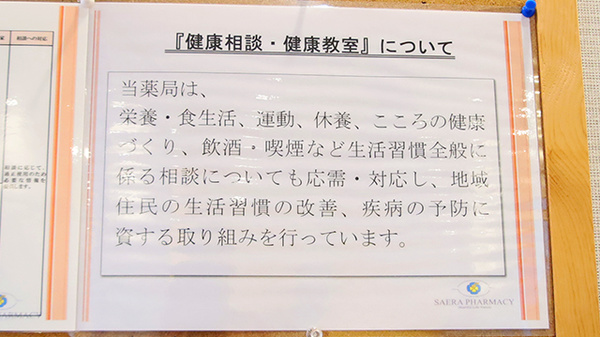 『健康相談・健康教室』について
当薬局は、
栄養・食生活、運動、休養、こころの健康
づくり、飲酒・喫煙など生活習慣全般に
係る相談についても応需・対応し、地域
住民の生活習慣の改善、疾病の予防に
資する取り組みを行っています。
SAERA PHARMACY
相談への対応